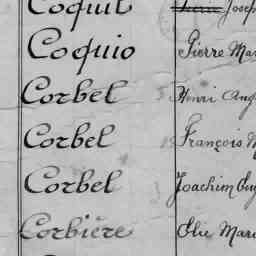 Coquil Joseph
Coquio Pierre Mar
Corbel Henri Aug
Corbel François M
Corbel Joachim Eug
Corbière Elie Mari